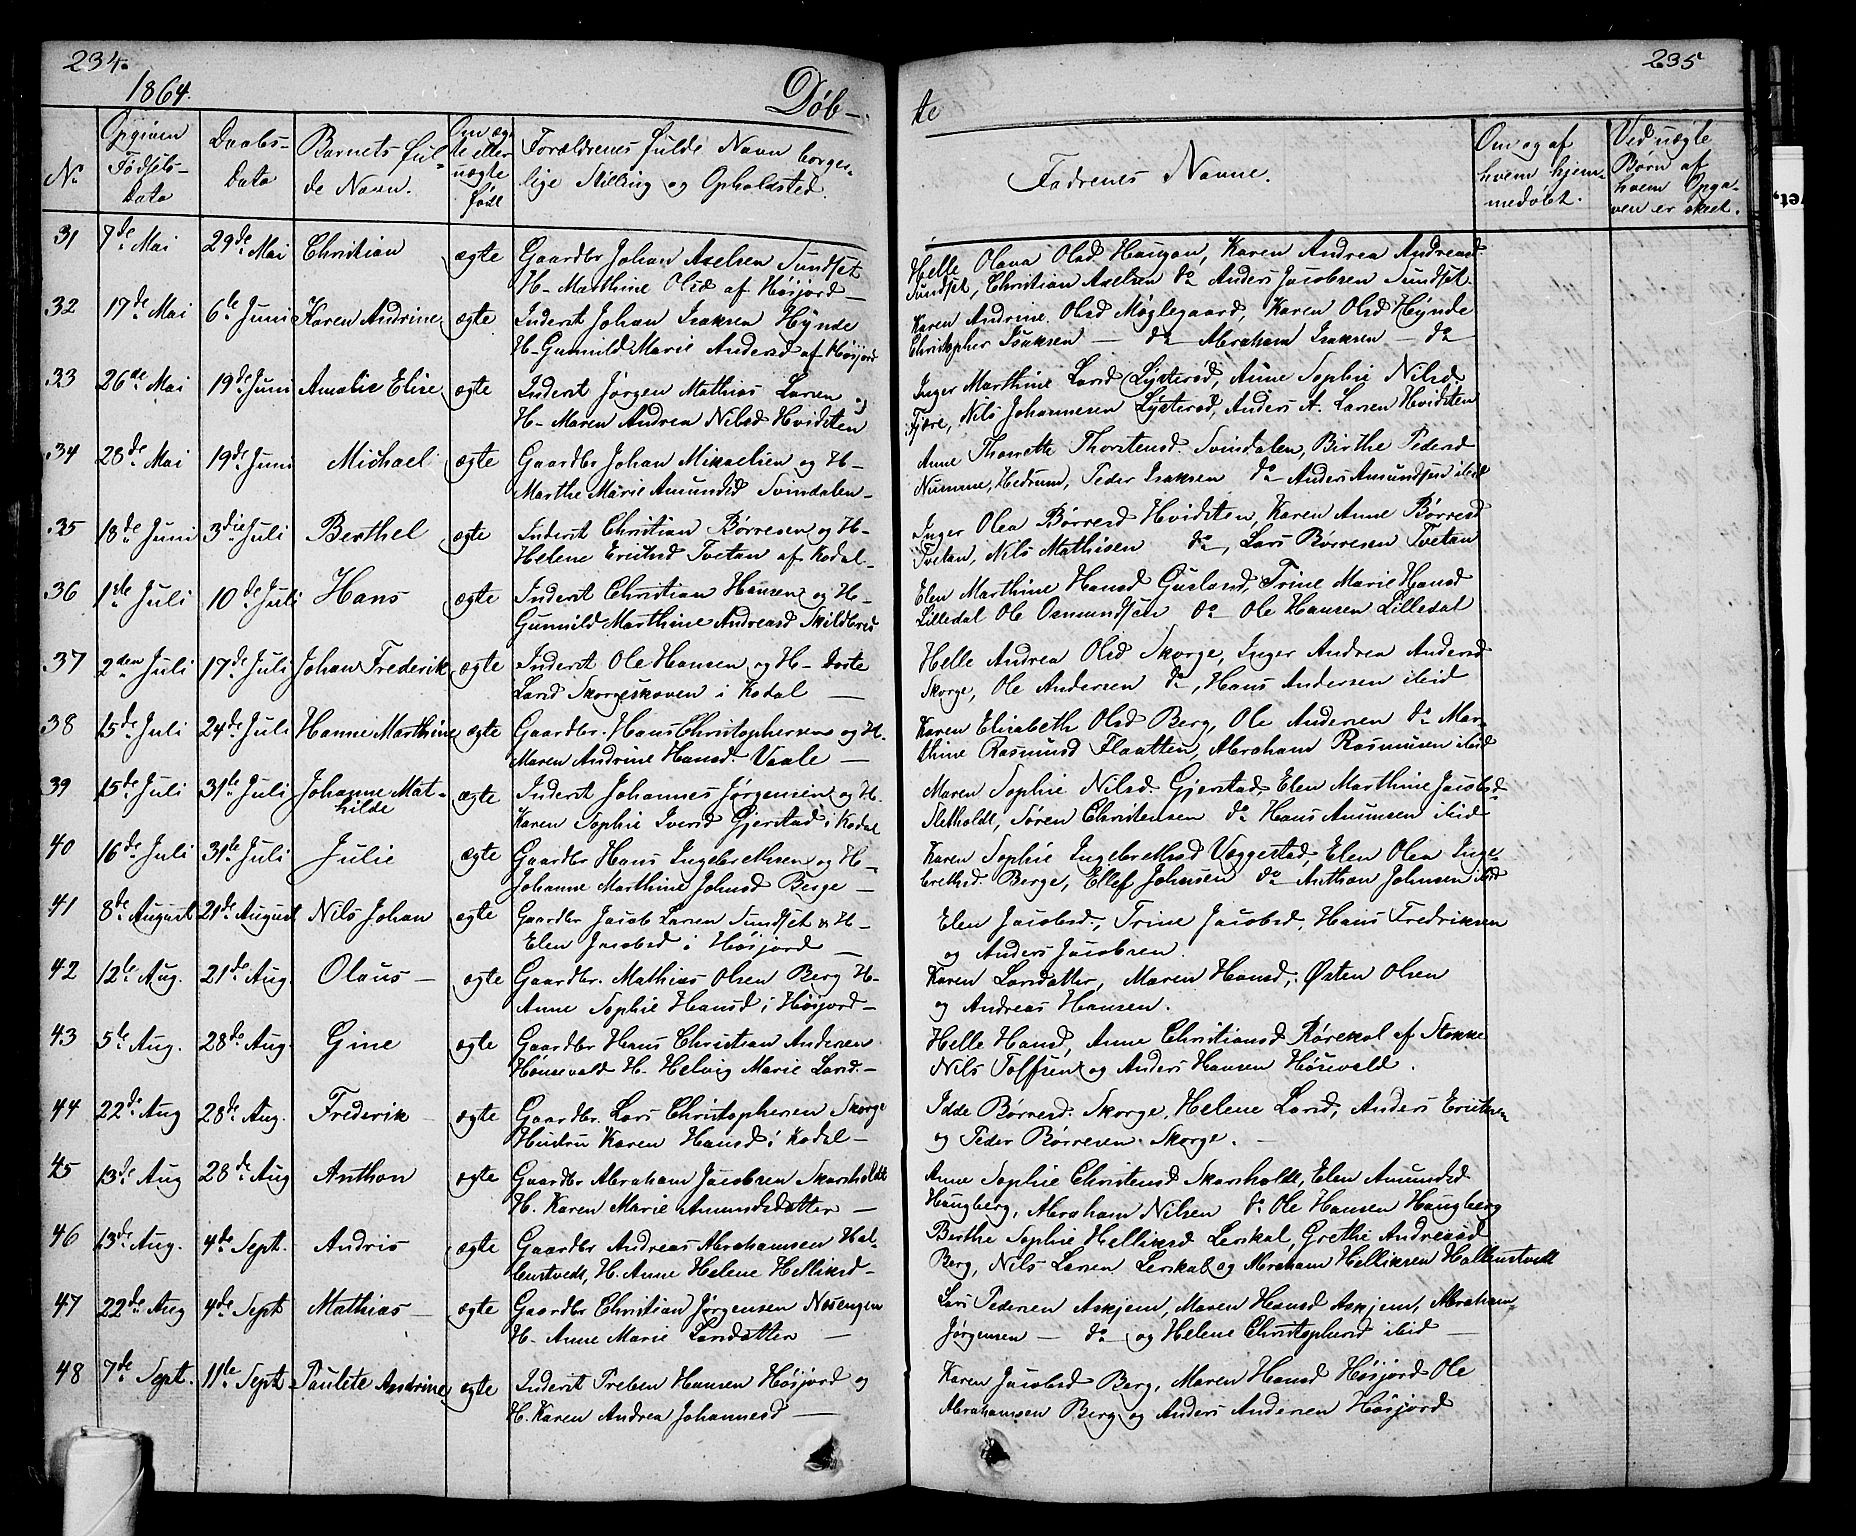 234.
1864.
Døb-
No
Opgiven Fødsels-Dato
Daabs-Dato
Barnets fulde Navn.
Om ægte eller uægte født
Forældrenes fulde Navn borgerlige Stilling og Opholdsted.
31 7de Mai 29de Mai Christian ægte Gaardbr Johan Axelsen Sundset
H- Marthine Olsd af Høijord-
32 17de Mai 6te Juni Karen Andrine ægte Inderst Johan Isaksen Hynde
H- Gunnild Marie Andersd af Høijord
33 26de Mai 19de Juni Amalie Elise ægte Inderst Jørgen Mathias Larsen og
H- Maren Andrea Nilsd Hvidsten
34 28de Mai 19de Juni Michael ægte Gaardbr Johan Mikaelsen og H-
Marthe Marie Amundsd Svindalen-
35 18de Juni 3die Juli Berthel ægte Inderst Christian Børresen og H-
Helene Eriksd Tvetan af Kodal-
36 1ste Juli 10de Juli Hans ægte Inderst Christian Hansen og H-
Gunnild Marthine Andreasd Skildbred
37 2den Juli 17de Juli Johan Frederik ægte Inderst Ole Hansen og H- Dorte
Larsd Skorgeskoven i Kodal —
38 15de Juli 24de Juli Hanne Marthine ægte Gaardbr. Hans Christophersen og H-
Maren Andrine Hansd. Vaale —
39 15de Juli 31te Juli Johanne Mat-
hilde ægte Inderst Johannes Jørgensen og H-
Karen Sophie Iversd Gjerstad i Kodal
40 16de Juli 31te Juli Julie ægte Gaardbr Hans Ingebrethsen og H-
Johanne Marthine Johnsd Berge —
41 8de August 21de August Nils Johan ægte Gaardbr Jacob Larsen Sundset & H-
Elen Jacobsd i Høijord —
42 12te Aug. 21de Aug. Olaus — ægte Gaardbr. Mathias Olsen Berg H-
Anne Sophie Hansd i Høijord —
43 5te Aug. 28de Aug. Gine ægte Gaardbr Hans Christian Andersen
H. Helvig Marie Larsd. —
44 22de Aug 28de Aug. Frederik ægte Gaardbr. Lars Christophersen Skorge
Hustru Karen Hansd i Kodal —
45 13de Aug 28de Aug Anthon ægte Gaardbr Abraham Jacobsen Skarsholdt
H. Karen Marie Amundsdatter —
46 13de Aug. 4de Sept. Andris ægte Gaardbr Andreas Abrahamsen Hal-
lenstvedt, H. Anne Helene Helliksd —
47 22de Aug 4de Sept Mathias — ægte Gaardbr Christian Jørgensen Nøsengen
H- Anne Marie Larsdatter —
48 7de Sept. 11te Sept Paulete Andrine ægte Inderst Preben Hansen Høijord og
H. Karen Andrea Johannesd —
235
te
Fadrenes Navne.
Om og af hvem hjemmedøbt.
Ved uægte Børn af hvem Opgaven er skeet.
Helle Olava Olsd Haugan, Karen Andrea Andreasd
Sundset, Christian Axelsen do Anders Jacobsen Sundset.
Karen Andrine Olsd Møglegaard, Karen Olsd Hynde
Christopher Isaksen — do Abraham Isaksen — do
Inger Marthine Larsd Lysterød, Anne Sophie Nilsd
Fjære, Nils Johannesen Lysterød, Anders A. Larsen Hvidsten
Anne Thorstensd. Svindalen, Birthe Pedersd
Numme, Hedrum, Peder Isaksen do Anders Amundsen ibid
Inger Olea Børresd Hvidsten, Karen Anne Børresd
Tvetan, Nils Mathisen do, Lars Børresen Tvetan
Elen Marthine Hansd Gusland, Trine Marie Hansd
Lilledal Ole Osmundsen do Ole Hansen Lilledal
Helle Andrea Olsd Skorge, Inger Andrea Andersd
Skorge, Ole Andersen do, Hans Andersen ibid
Karen Elisabeth Olsd Berg, Ole Andersen do Mar-
thine Rasmusd Flaatten, Abraham Rasmusen ibid
Maren Sophie Nilsd Gjerstad, Elen Marthine Jacobsd
Sletholdt, Søren Christensen do Hans Anunsen ibid
Karen Sophie Ingebrethsd Væggestad, Elen Olea Inge-
brethsd. Berge, Ellef Johnsen do Anthon Johnsen ibid
Elen Jacobsd., Trine Jacobsd, Hans Fredriksen
og Anders Jacobsen.
Karen Larsdatter, Maren Hansd., Østen Olsen
og Andreas Hansen.
Helle Hansd, Anne Christiansd Rørekol af Stokke
Nils Tolfsen og Anders Hansen Høsevald.
Idde Børresd: Skorge, Helene Larsd, Anders Eriksen
og Peder Børresen Skorge. —
Anne Sophie Christensd Skarsholdt, Elen Amundsd
Haugberg, Abraham Nilsen do Ole Hansen Haugberg
Birthe Sophie Helliksd Lerskal, Grethe Andreasd
Berg, Nils Larsen Lerskal og Abraham Helliksen Hallenstvedt
Lars Pedersen Askjem, Maren Hansd Askjem, Abraham
Jørgensen — do og Helene Christophersd ibid —
Karen Jacobsd Berg, Maren Hansd Høijord Ole
Abrahamsen Berg og Anders Andersen Høijord